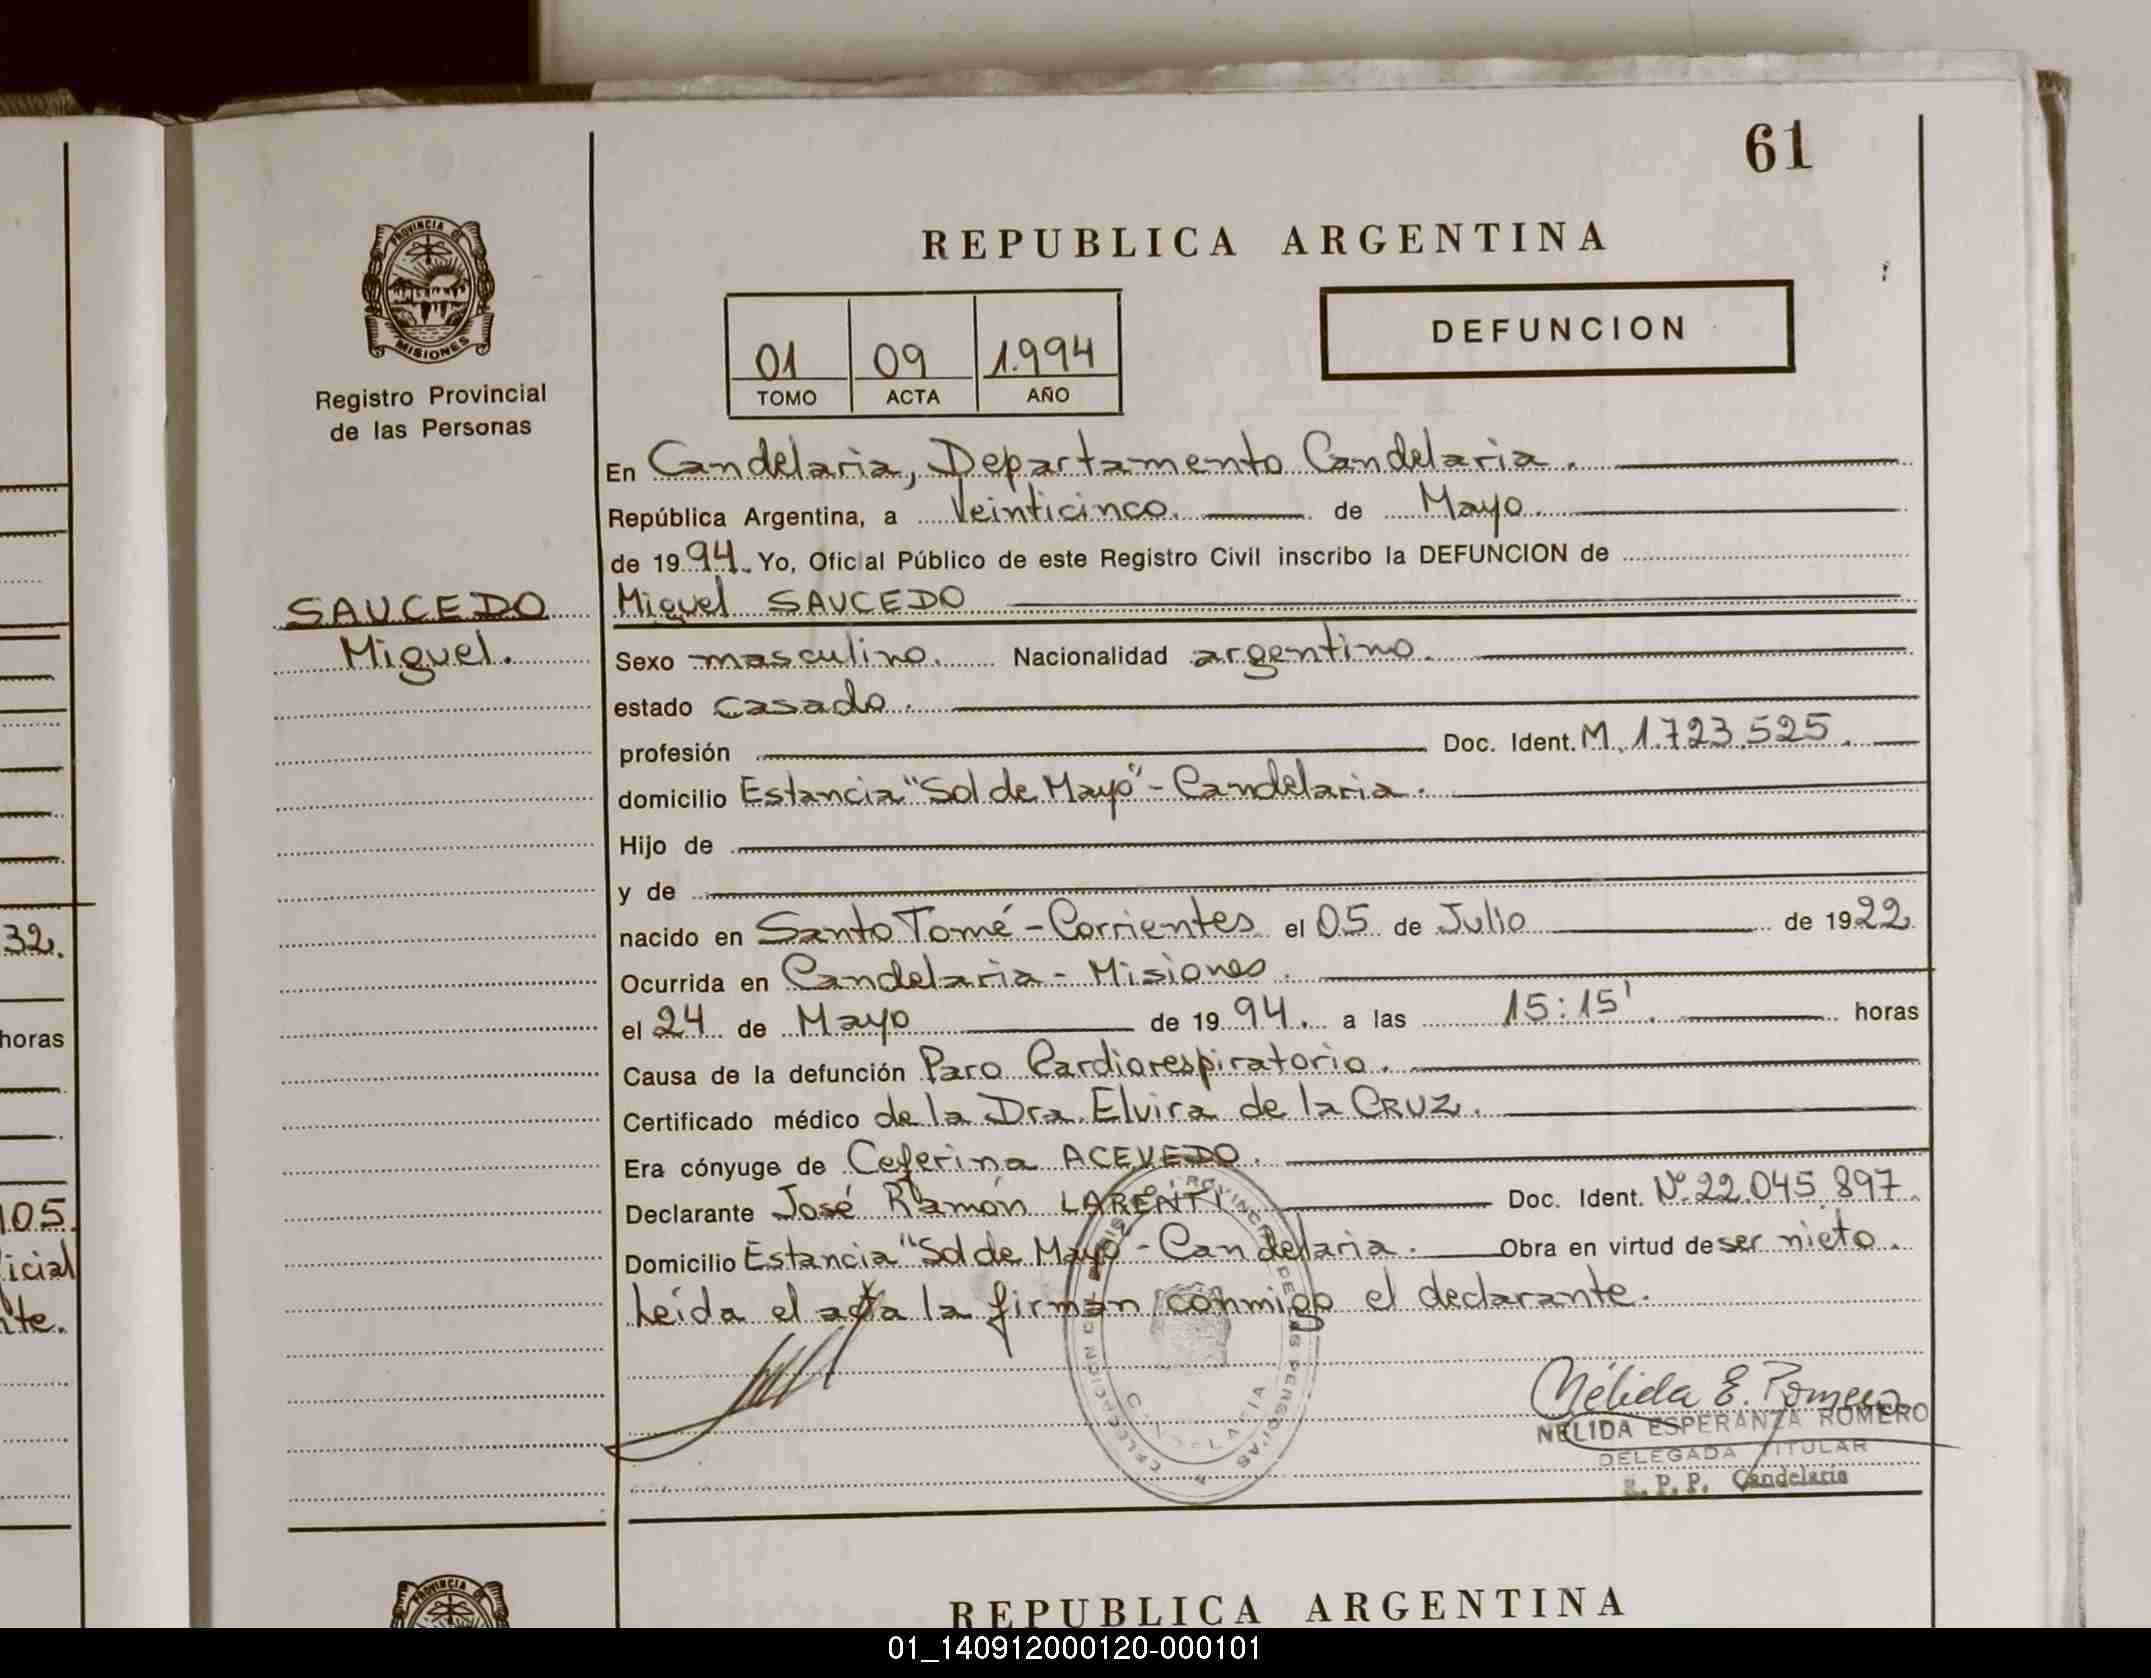 61
PROVINCIA DE
MISIONES
Registro Provincial
de las Personas
REPUBLICA ARGENTINA
DEFUNCION
01 09 1.994
TOMO ACTA AÑO
En Candelaria, Departamento Candelaria.
República Argentina, a Veinticinco. de Mayo.
de 1994. Yo, Oficial Público de este Registro Civil inscribo la DEFUNCION de
SAUCEDO
Miguel.
Miguel SAUCEDO
Sexo masculino. Nacionalidad argentino.
estado casado.
profesión Doc. Ident. M. 1.723.525.
domicilio Estancia "Sol de Mayo" - Candelaria.
Hijo de
y de
nacido en Santo Tomé - Corrientes el 05 de Julio de 1922
Ocurrida en Candelaria - Misiones.
el 24 de Mayo de 1994. a las 15:15'. horas
Causa de la defunción Paro Cardiorespiratorio.
Certificado médico de la Dra. Elvira de la CRUZ.
Era cónyuge de Ceferina ACEVEDO.
Declarante José Ramón LARENTI Doc. Ident. Nº 22.045.897.
Domicilio Estancia "Sol de Mayo" - Candelaria. Obra en virtud de ser nieto.
Leída el acta la firman conmigo el declarante.
Nélida E. Romero
NELIDA ESPERANZA ROMERO
DELEGADA TITULAR
R. P. P. Candelaria
32.
horas
105.
icial
te.
PROVINCIA
REPUBLICA ARGENTINA
01_140912000120-000101